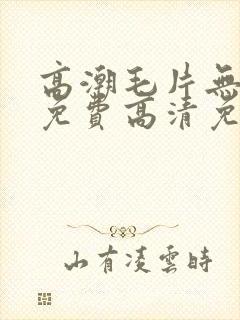 高潮毛片無
免費高清免
山有凌雲時